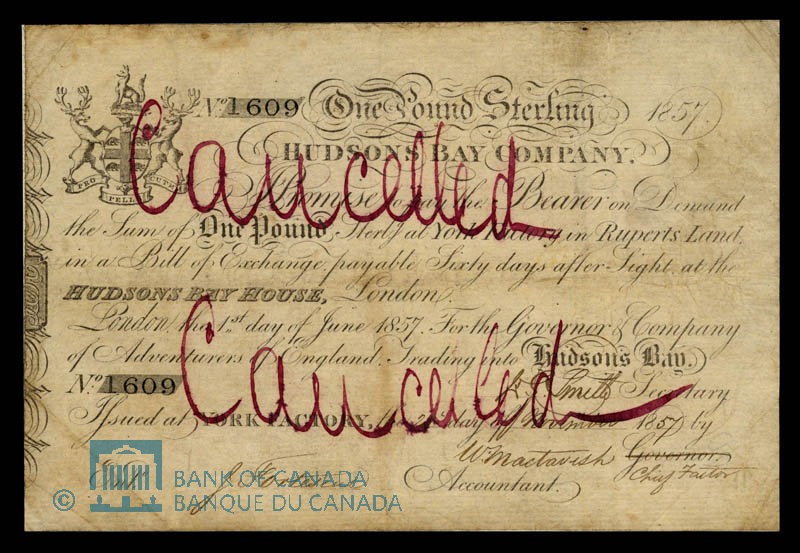 No. 1609 One Pound Sterling 1857.
HUDSONS BAY COMPANY.
PRO PELLE CUTEM
Promise to pay the Bearer on Demand
the Sum of One Pound Sterlg at York Factory in Ruperts Land,
in a Bill of Exchange, payable Sixty days after Sight, at the
HUDSONS BAY HOUSE, London.
London, the 1st day of June 1857. For the Governor & Company
of Adventurers of England, Trading into Hudson's Bay.
No. 1609 Smith Secretary
Issued at YORK FACTORY, the day of November 1857 by
W Mactavish Governor.
Chief Factor
Entd Accountant.
Cancelled
Cancelled
BANK OF CANADA
© BANQUE DU CANADA